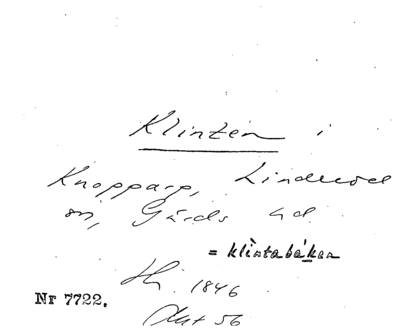 Klinten i
Knopparp, Linderöd
sn, Gärds hd.
= klintabáken
Hi. 1846
Nr 7722.
56